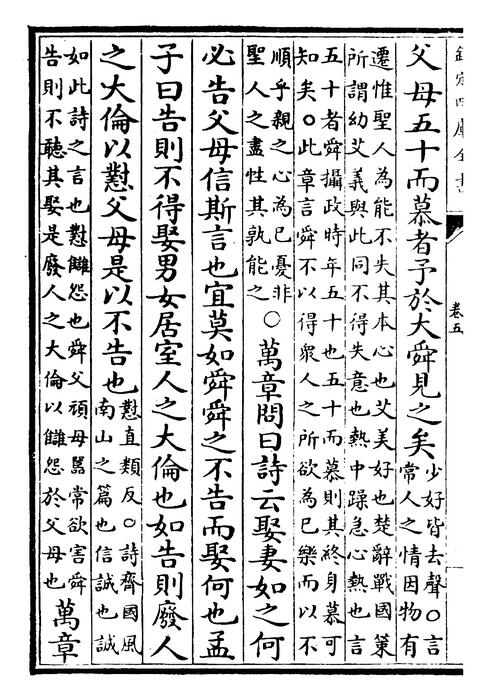 欽定四庫全書
卷五
父母五十而慕者予於大舜見之矣
少好皆去聲○言
常人之情因物有
遷惟聖人為能不失其本心也艾美好也楚辭戰國策
所謂幼艾義與此同不得失意也熱中躁急心熱也言
五十者舜攝政時年五十也五十而慕則其終身慕可
知矣○此章言舜不以得衆人之所欲為已樂而以不
順乎親之心為已憂非
聖人之盡性其孰能之
○萬章問曰詩云娶妻如之何
必告父母信斯言也宜莫如舜舜之不告而娶何也孟
子曰告則不得娶男女居室人之大倫也如告則廢人
之大倫以懟父母是以不告也
懟直類反○詩齊國風
南山之篇也信誠也誠
如此詩之言也懟讎怨也舜父頑母嚚常欲害舜
告則不聽其娶是廢人之大倫以讎怨於父母也
萬章